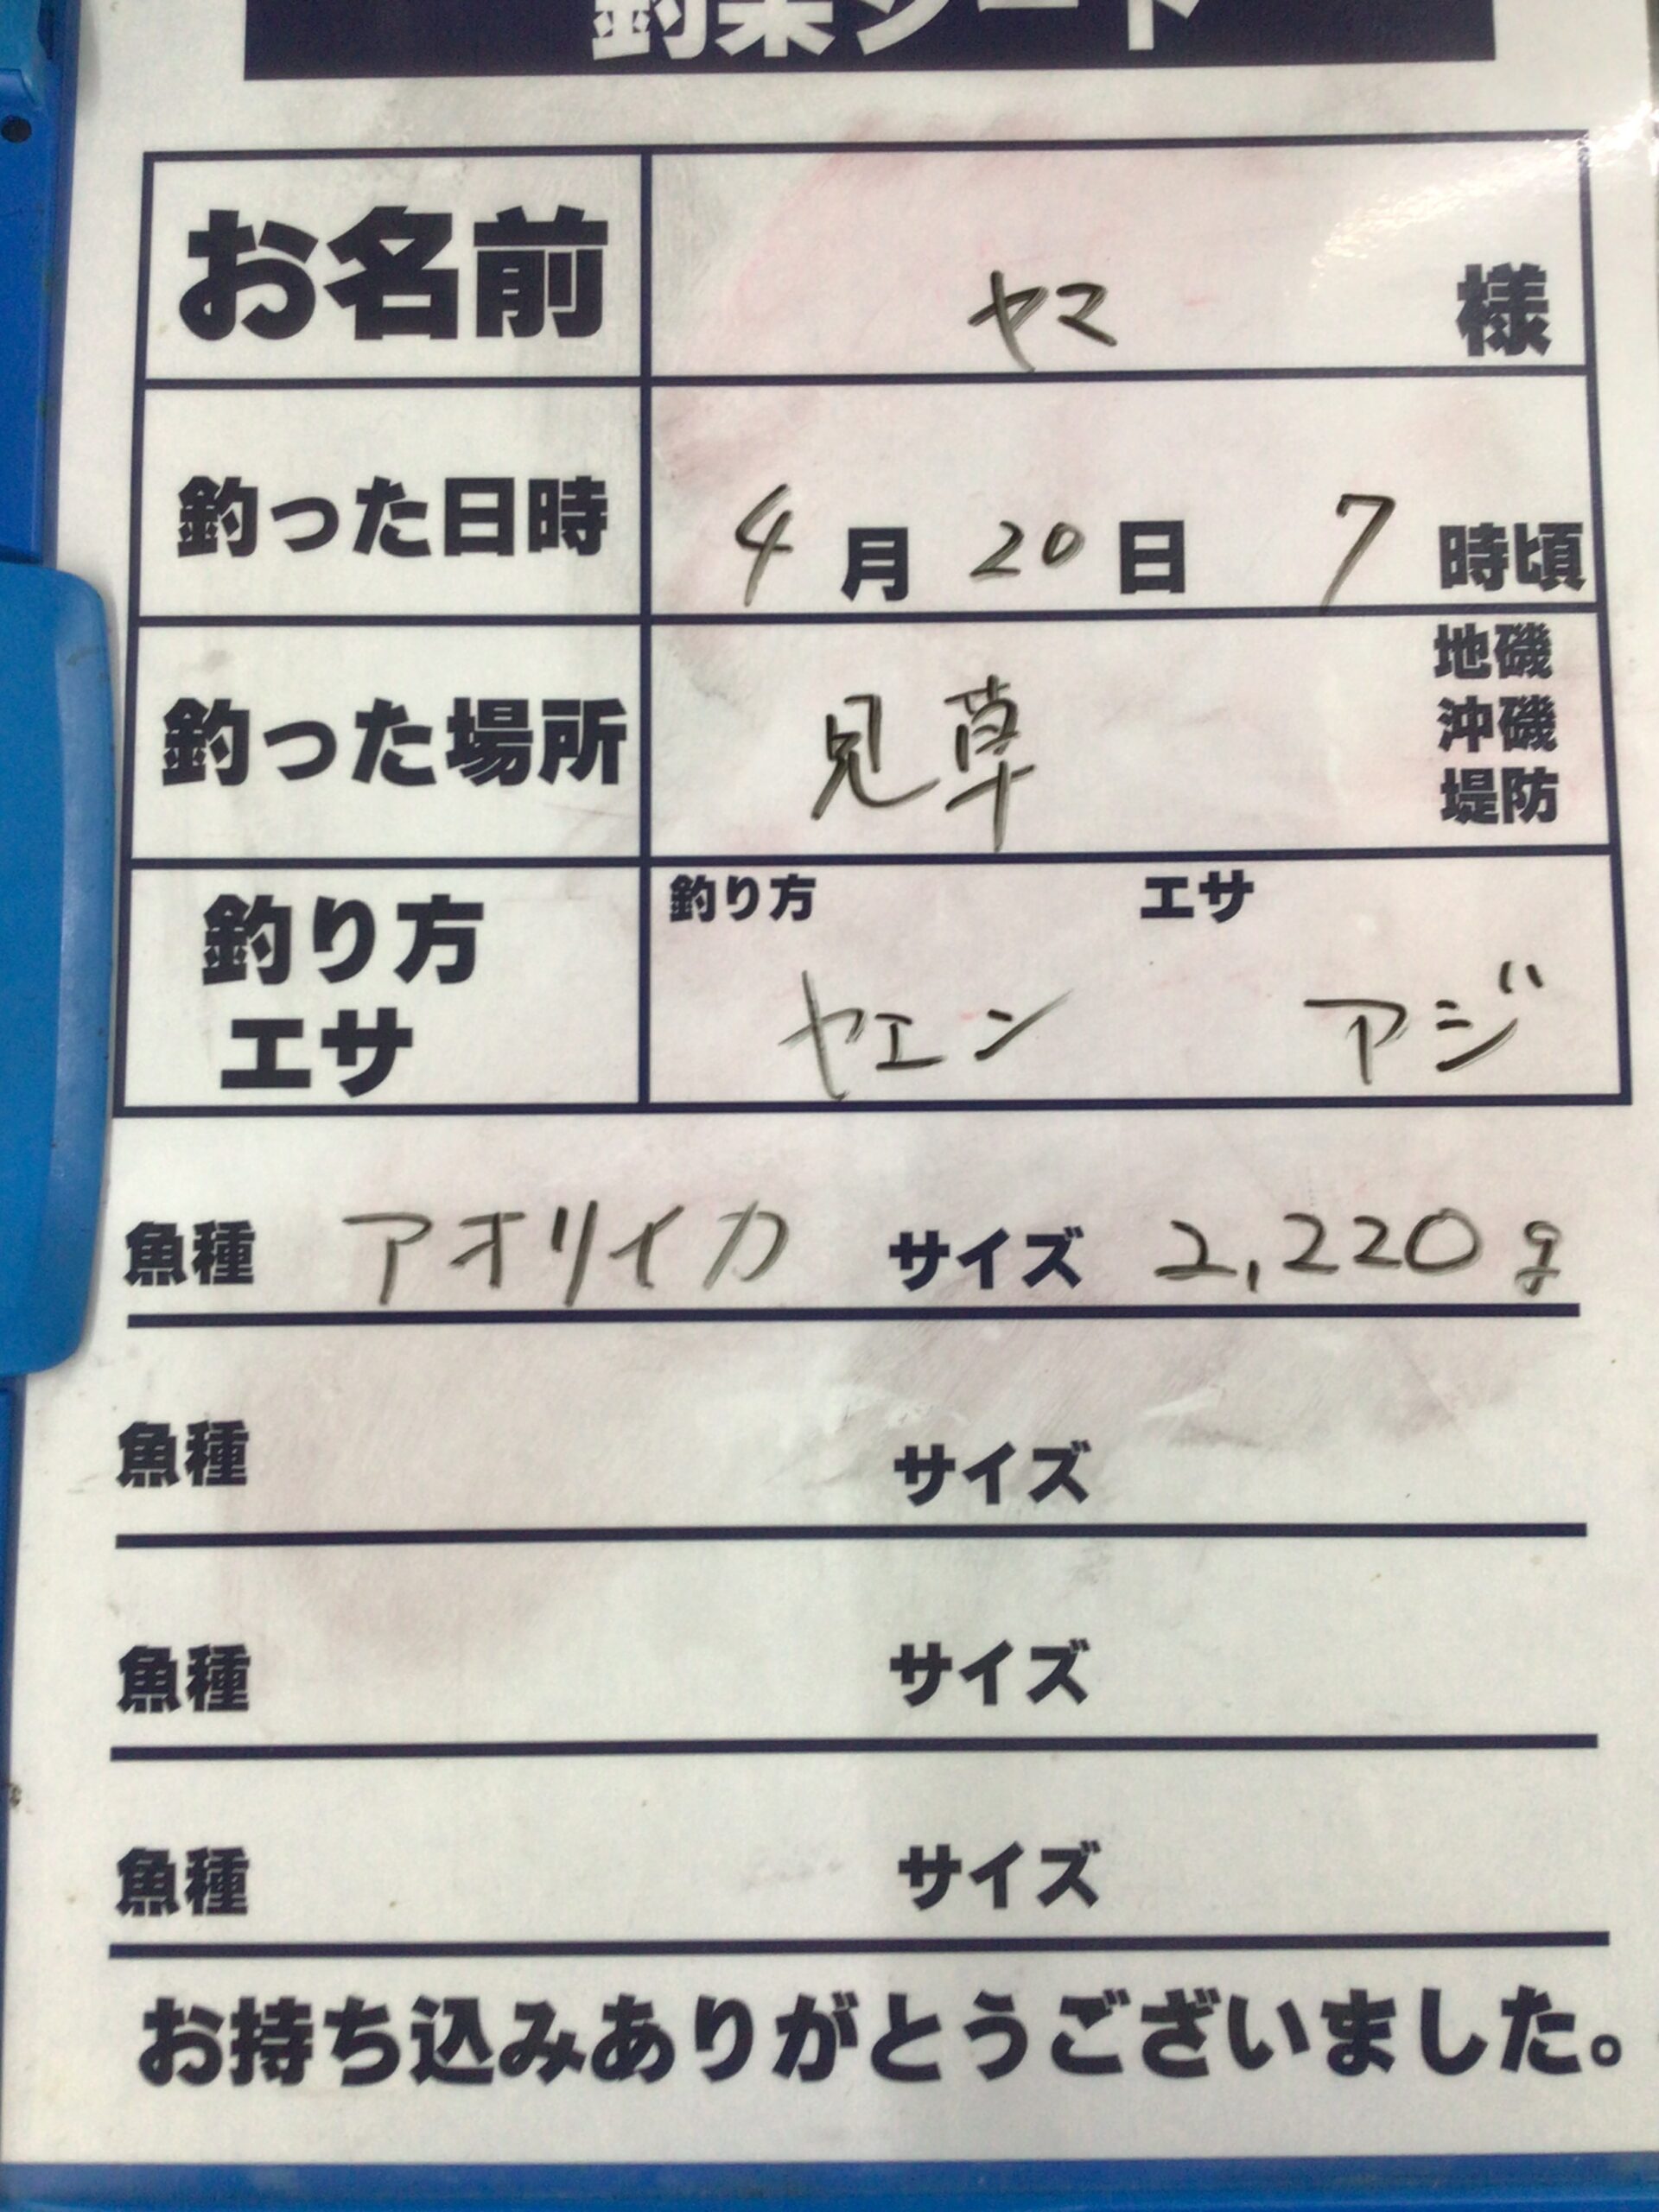 釣果シート
お名前 ヤマ 様
釣った日時 4月20日 7時頃
釣った場所 見草 地磯 沖磯 堤防
釣り方 エサ
釣り方 エサ
ヤエン アジ
魚種 アオリイカ サイズ 2,220g
魚種 サイズ
魚種 サイズ
魚種 サイズ
お持ち込みありがとうございました。